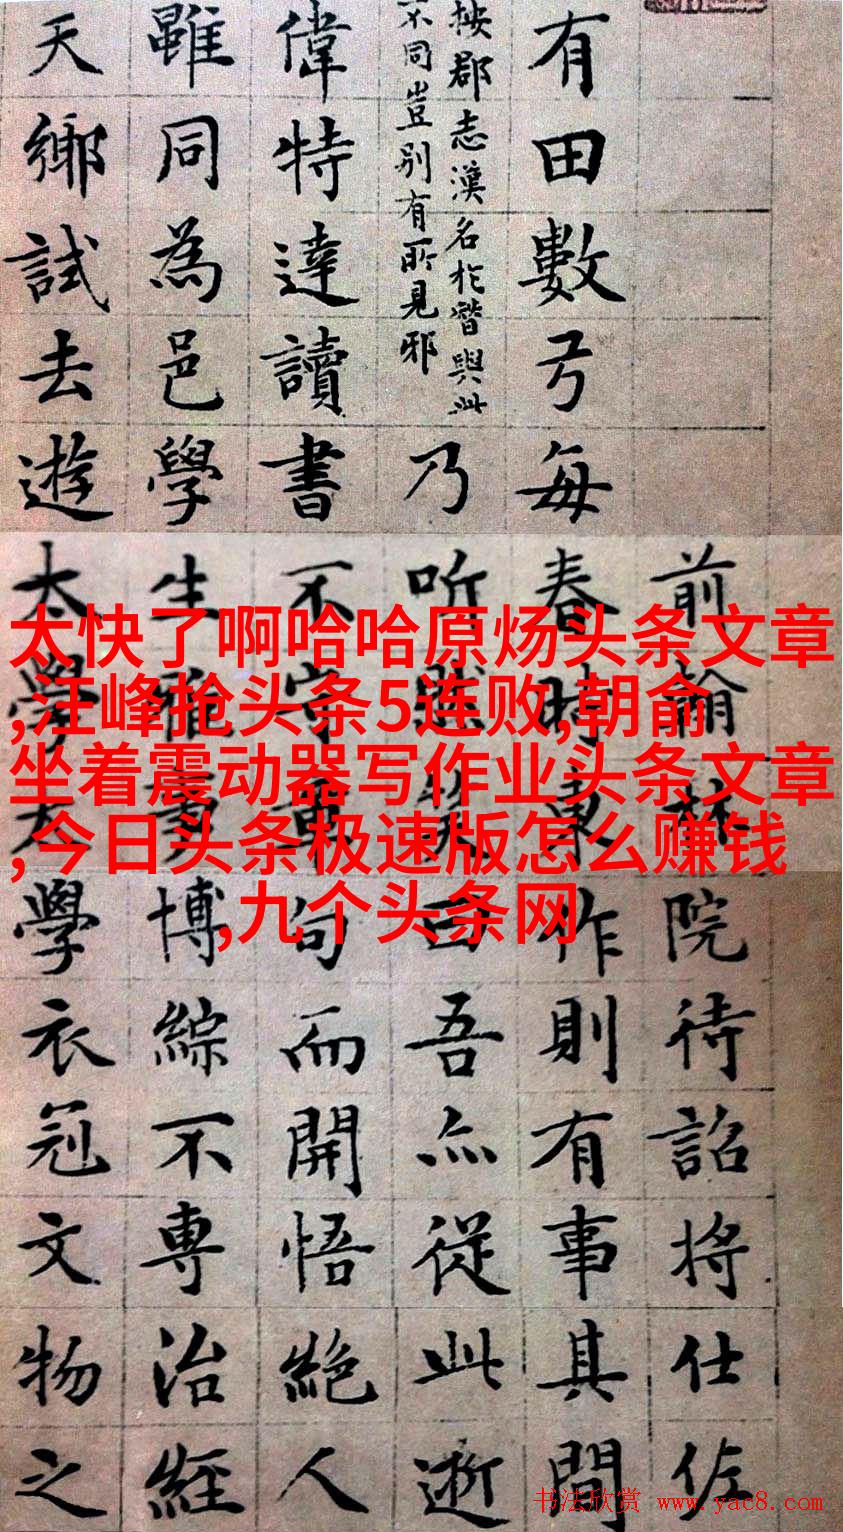 前翰林院待詔將仕佐
有田數弓每春時東作則有事其間
按郡志漢名於潛與此
不同豈別有所見邪
乃听然笑曰吾亦從此逝
偉特達讀書不守章句而開悟絕人
雖同為邑學生雅事博綜不專治經
天鄉試去遊太學太學衣冠文物之
太快了啊哈哈原炀头条文章
,汪峰抢头条5连败,朝俞
坐着震动器写作业头条文章
,今日头条极速版怎么赚钱
,九个头条网
书法欣赏 www.yac8.com